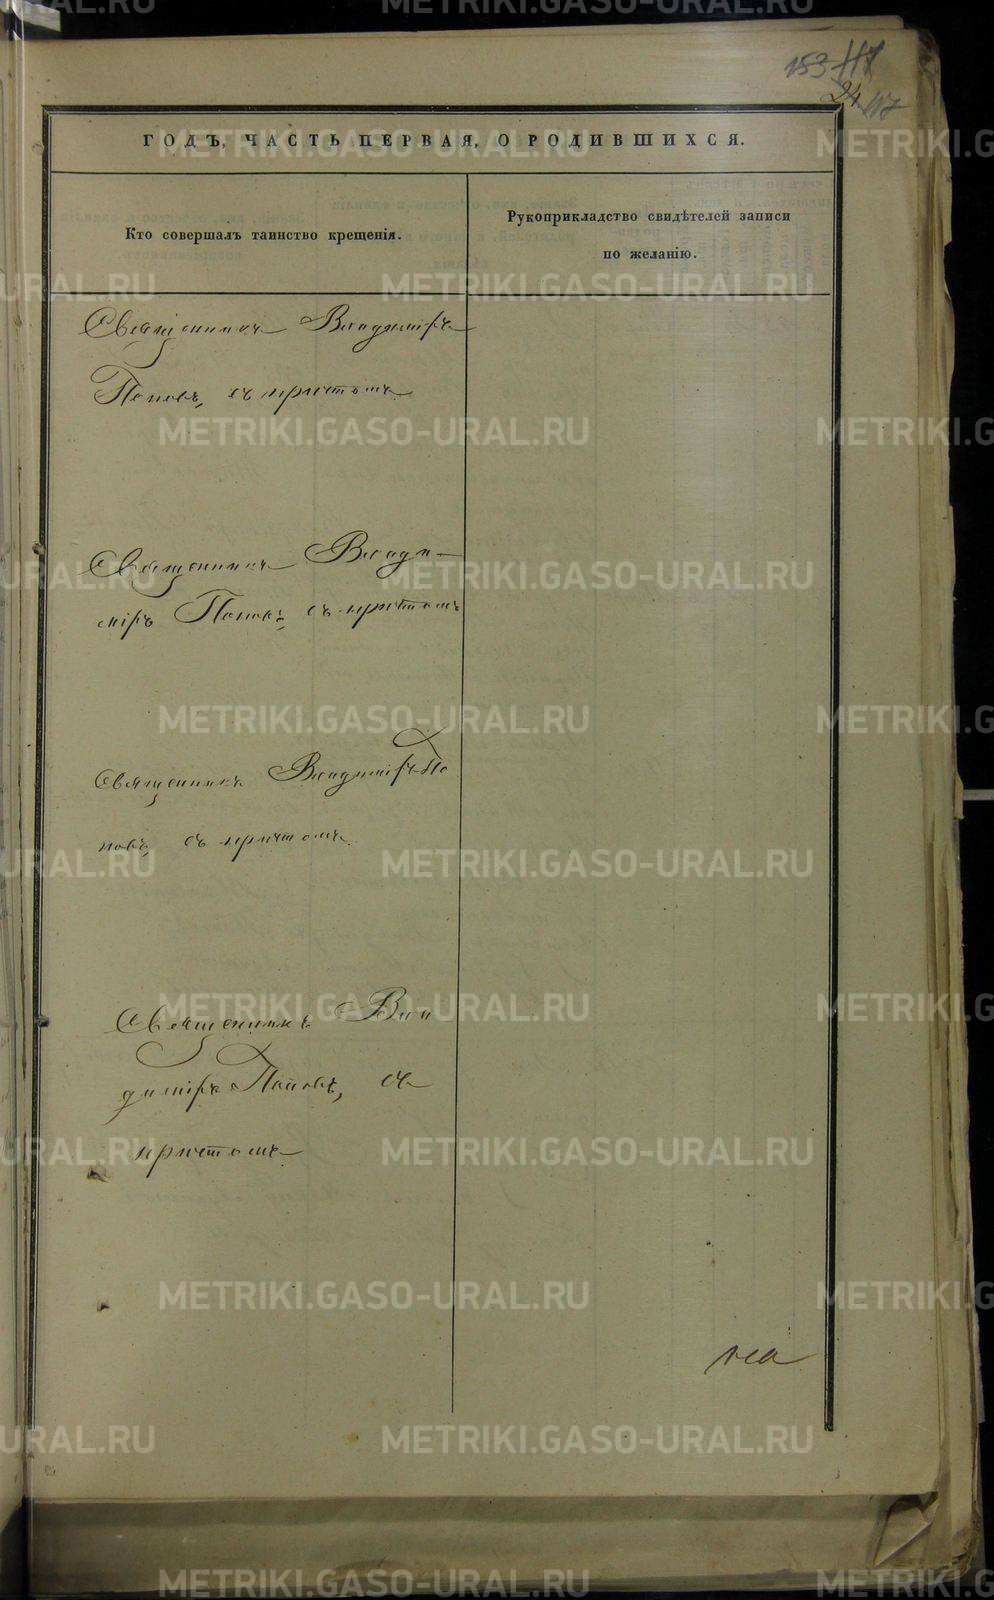 153 117
24 117
ГОДЪ, ЧАСТЬ ПЕРВАЯ, О РОДИВШИХСЯ.
Кто совершалъ таинство крещенія.
Рукоприкладство свидѣтелей записи
по желанію.
Священникъ Владиміръ
Поповъ, съ причтомъ
Священникъ Влади-
міръ Поповъ, съ причтомъ
Священникъ Владиміръ По
повъ, съ причтомъ
Священникъ Вла
диміръ Поповъ, съ
причтомъ
METRIKI.GASO-URAL.RU